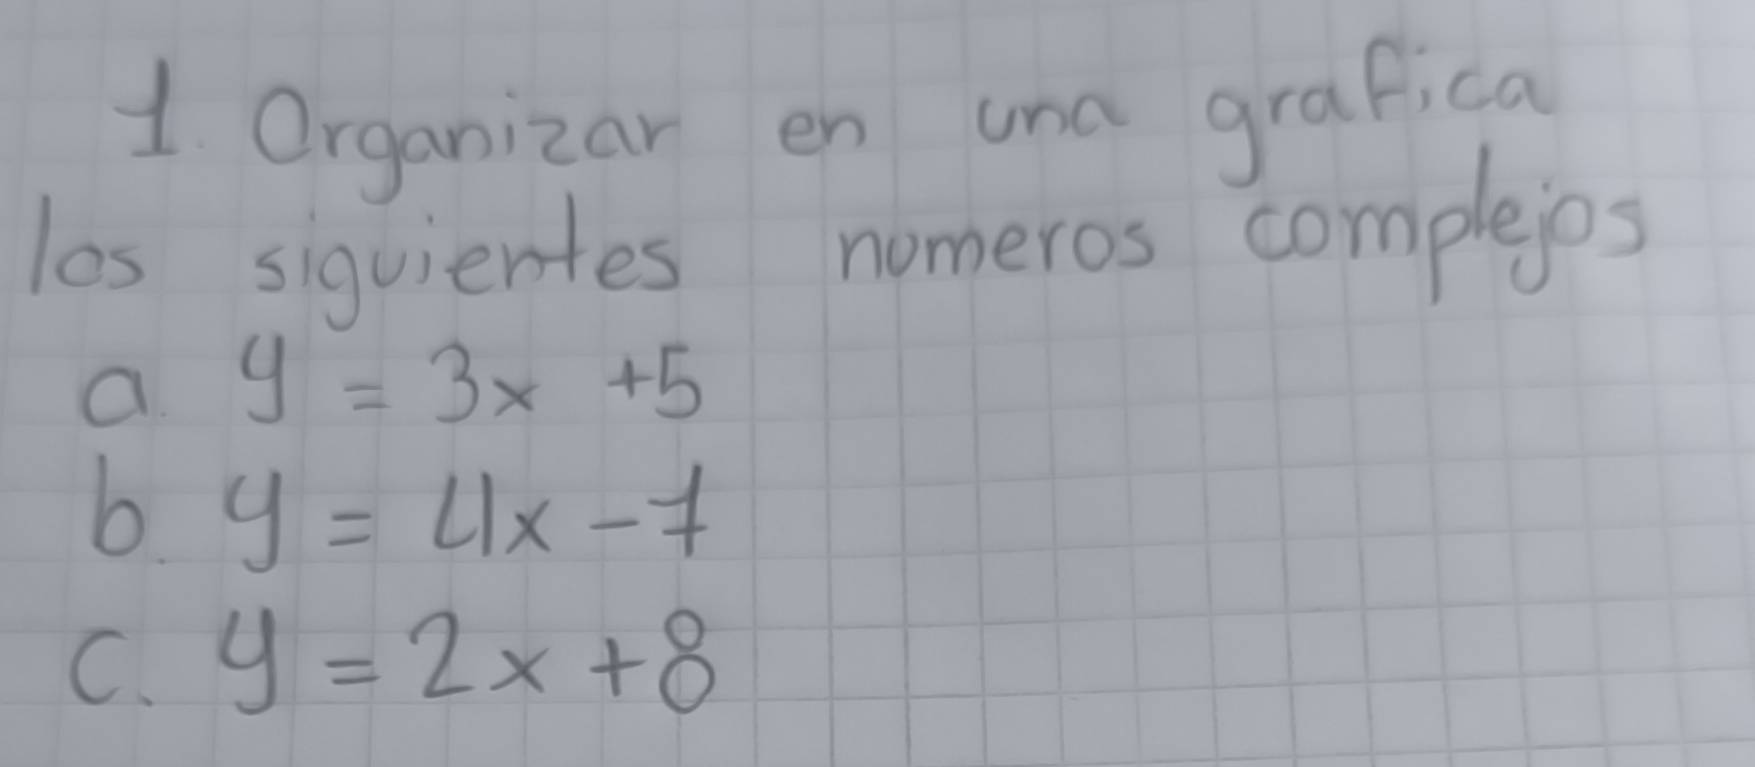 1. Organizar en una grafica
los siguientes numeros complejos
a. y = 3x +5
b. y = 4x -7
c. y = 2x +8